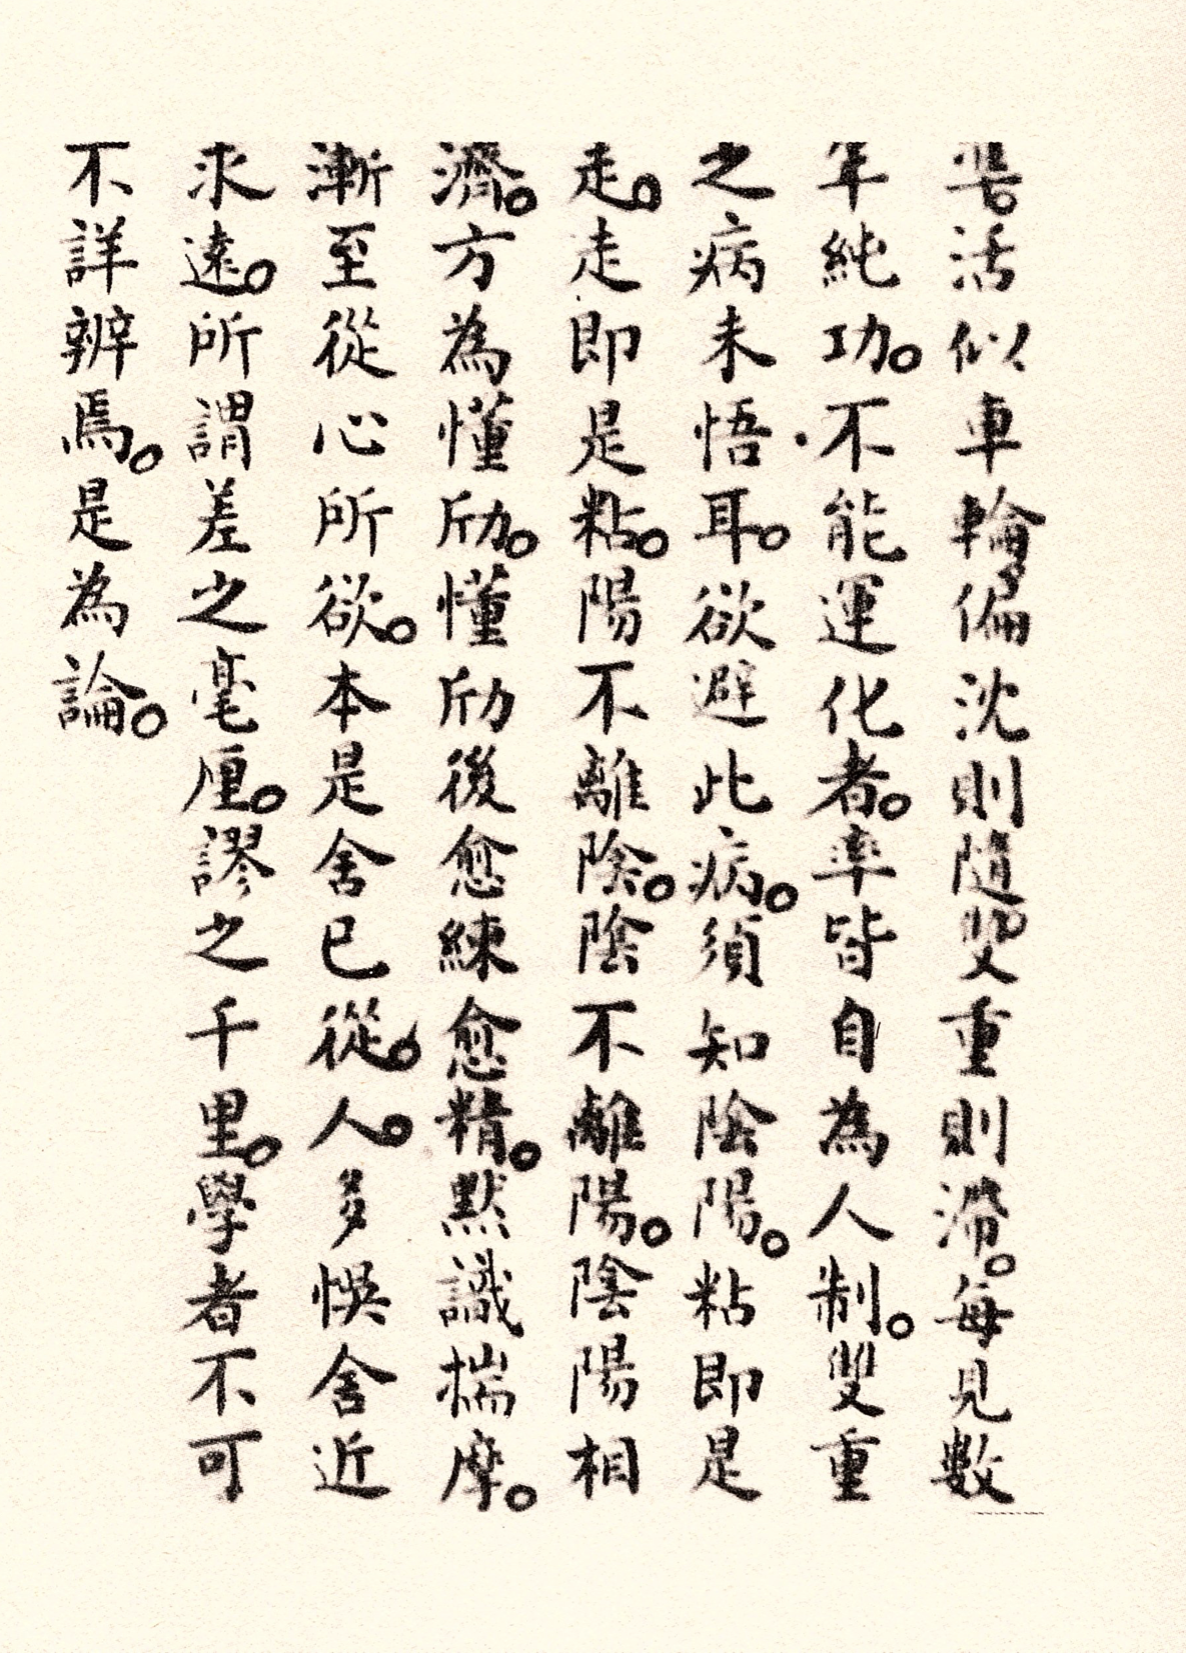 準。活似車輪偏沈則隨。雙重則滯。每見數
年純功。不能運化者。率皆自為人制。雙重
之病未悟耳。欲避此病。須知陰陽。粘即是
走。走即是粘。陽不離陰。陰不離陽。陰陽相
濟。方為懂劤。懂劤後愈練愈精。默識揣摩。
漸至從心所欲。本是舍已從。人。多悞舍近
求遠。所謂差之毫厘。謬之千里。學者不可
不詳辨焉。是為論。